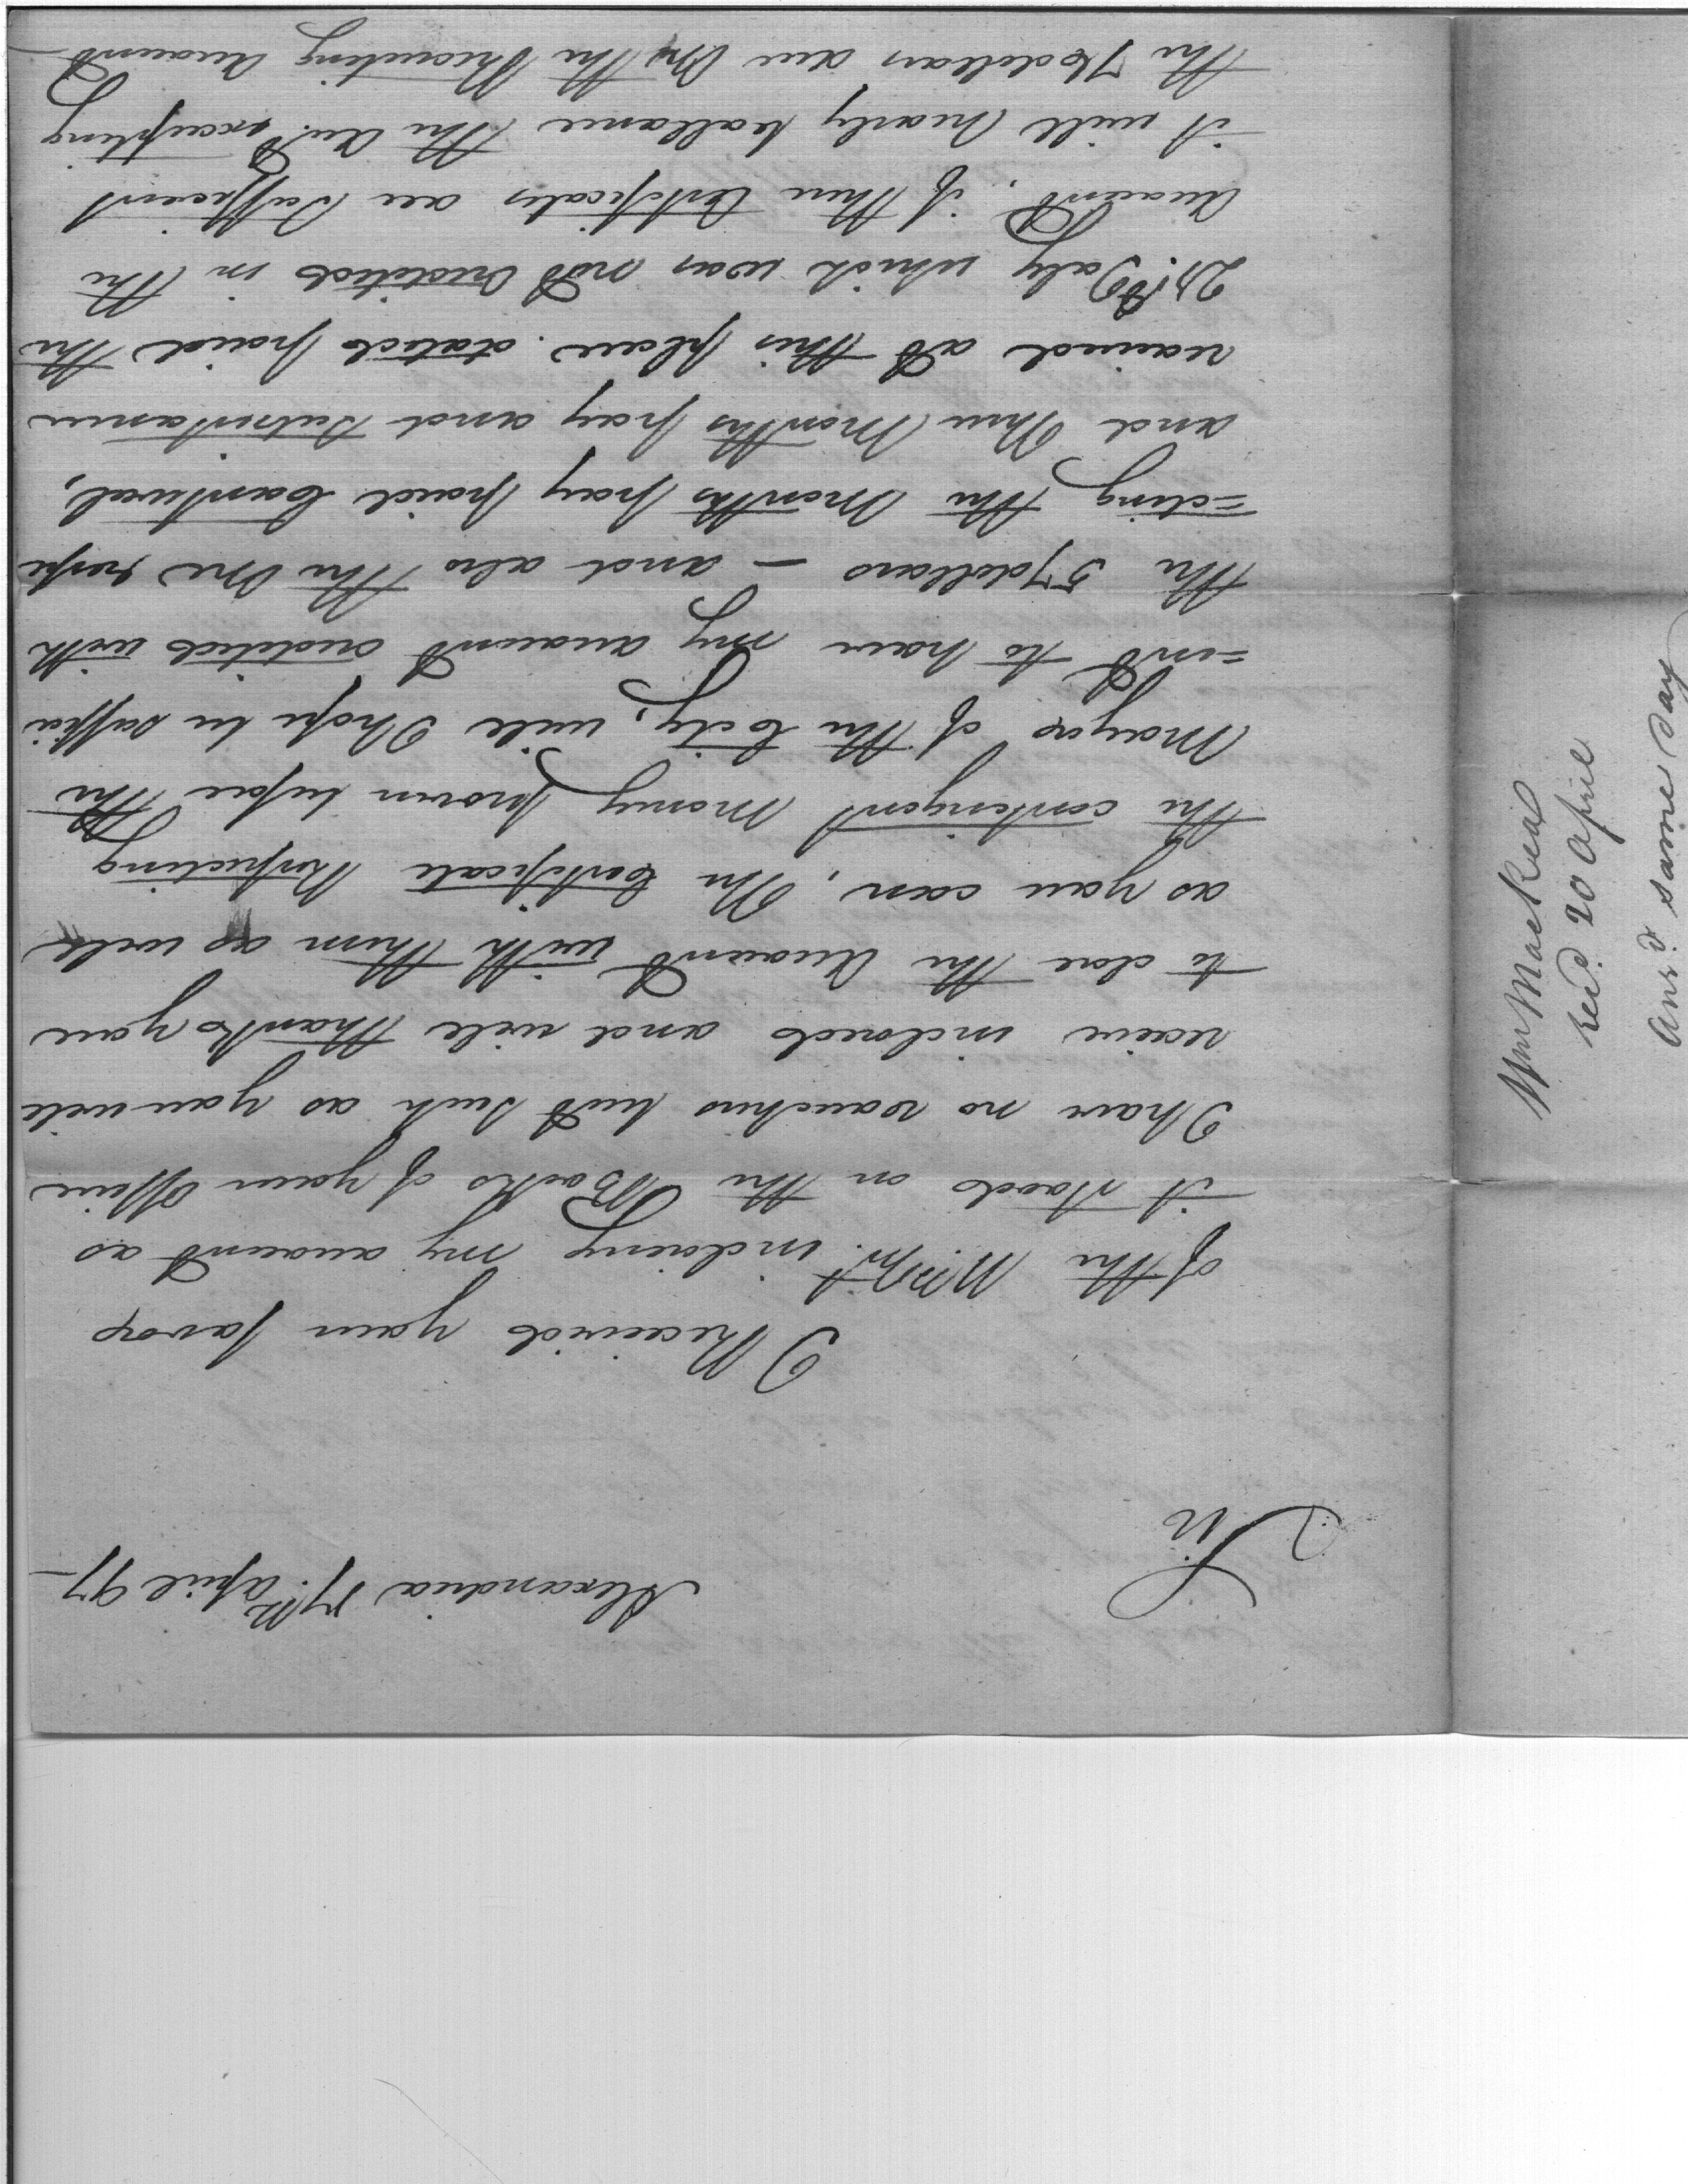 Alexandria 17th. april 97
Sir
I Received your favor
of the inclosing my account as
it stands on the Books of your office
I have no vouchers but such as you will
receive inclosed and will thank you
to close the account with them as well
as you can, The Certificate Respecting
the contengent money proven before the
Mayor of the City, will I hope be suffici
=ent to have my account credited with
the 57 dollars — and also the one respe
=cting the months pay paid Cantwel,
and three months pay and subsistance
received at this place. stated paid the
21st July which was not credited in the
account, if these Certificates are sufficient
it will nearly ballance the act. excepting
the 76 dollars due on the Recruiting account
Wm MacReal
recd. 20 april
ansd same day